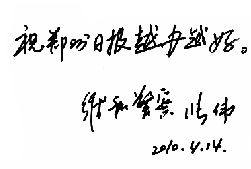 祝郑州日报越办越好。
维和警察 陈伟
2010.4.14.